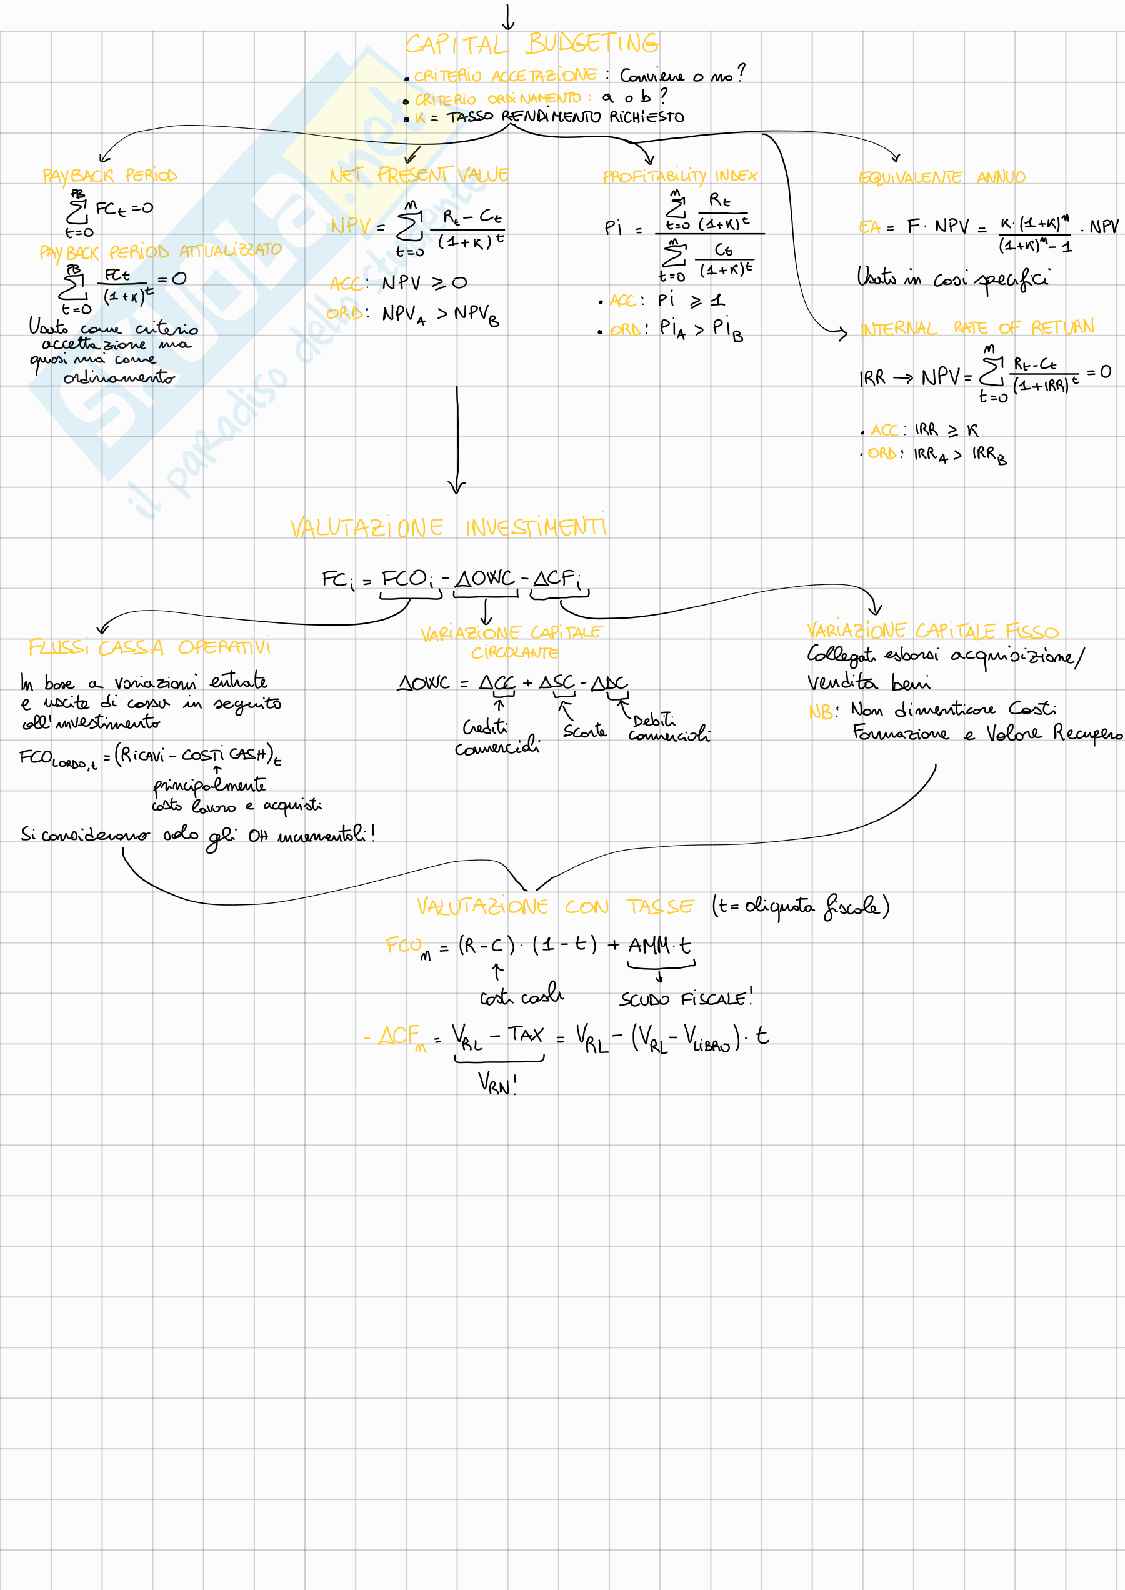 CAPITAL BUDGETING
• CRITERIO ACCETAZIONE : Conviene o no?
• CRITERIO ORDINAMENTO : a o b?
• K = TASSO RENDIMENTO RICHIESTO
PAYBACK PERIOD
PB
∑ FCt = 0
t=0
PAYBACK PERIOD ATTUALIZZATO
PB
∑ FCt / (1+K)^t = 0
t=0
Usato come criterio
accettazione ma
quasi mai come
ordinamento
NET PRESENT VALUE
NPV = ∑_{t=0}^{m} (Rt - Ct) / (1+K)^t
ACC: NPV ⩾ 0
ORD: NPV_A > NPV_B
PROFITABILITY INDEX
Pi = ∑_{t=0}^{m} Rt / (1+K)^t / ∑_{t=0}^{m} Ct / (1+K)^t
• ACC: Pi ⩾ 1
• ORD: Pi_A > Pi_B
EQUIVALENTE ANNUO
EA = F · NPV = K·(1+K)^m / ((1+K)^m - 1) · NPV
Usato in casi specifici
INTERNAL RATE OF RETURN
IRR → NPV = ∑_{t=0}^{m} (Rt - Ct) / (1+IRR)^t = 0
• ACC: IRR ⩾ K
• ORD: IRR_A > IRR_B
VALUTAZIONE INVESTIMENTI
FC_i = FCO_i - ΔOWC - ΔCF_i
FLUSSI CASSA OPERATIVI
In base a variazioni entrate
e uscite di cassa in seguito
all'investimento
FCO_LORDO,t = (RICAVI - COSTI CASH)_t
principalmente
costo lavoro e acquisti
Si considerano solo gli OH incrementali!
VARIAZIONE CAPITALE
CIRCOLANTE
ΔOWC = ΔCC + ΔSC - ΔDC
Crediti
commerciali
Scorte
Debiti
commerciali
VARIAZIONE CAPITALE FISSO
Collegati esborsi acquisizione/
vendita beni
NB: Non dimenticare Costi
Formazione e Valore Recupero
VALUTAZIONE CON TASSE (t = aliquota fiscale)
FCO_m = (R - C) · (1 - t) + AMM · t
costi cash
SCUDO FISCALE!
- ΔCF_m = V_RL - TAX = V_RL - (V_RL - V_LIBRO) · t
V_RN!
SKUOLA.net
il paradiso dello studente